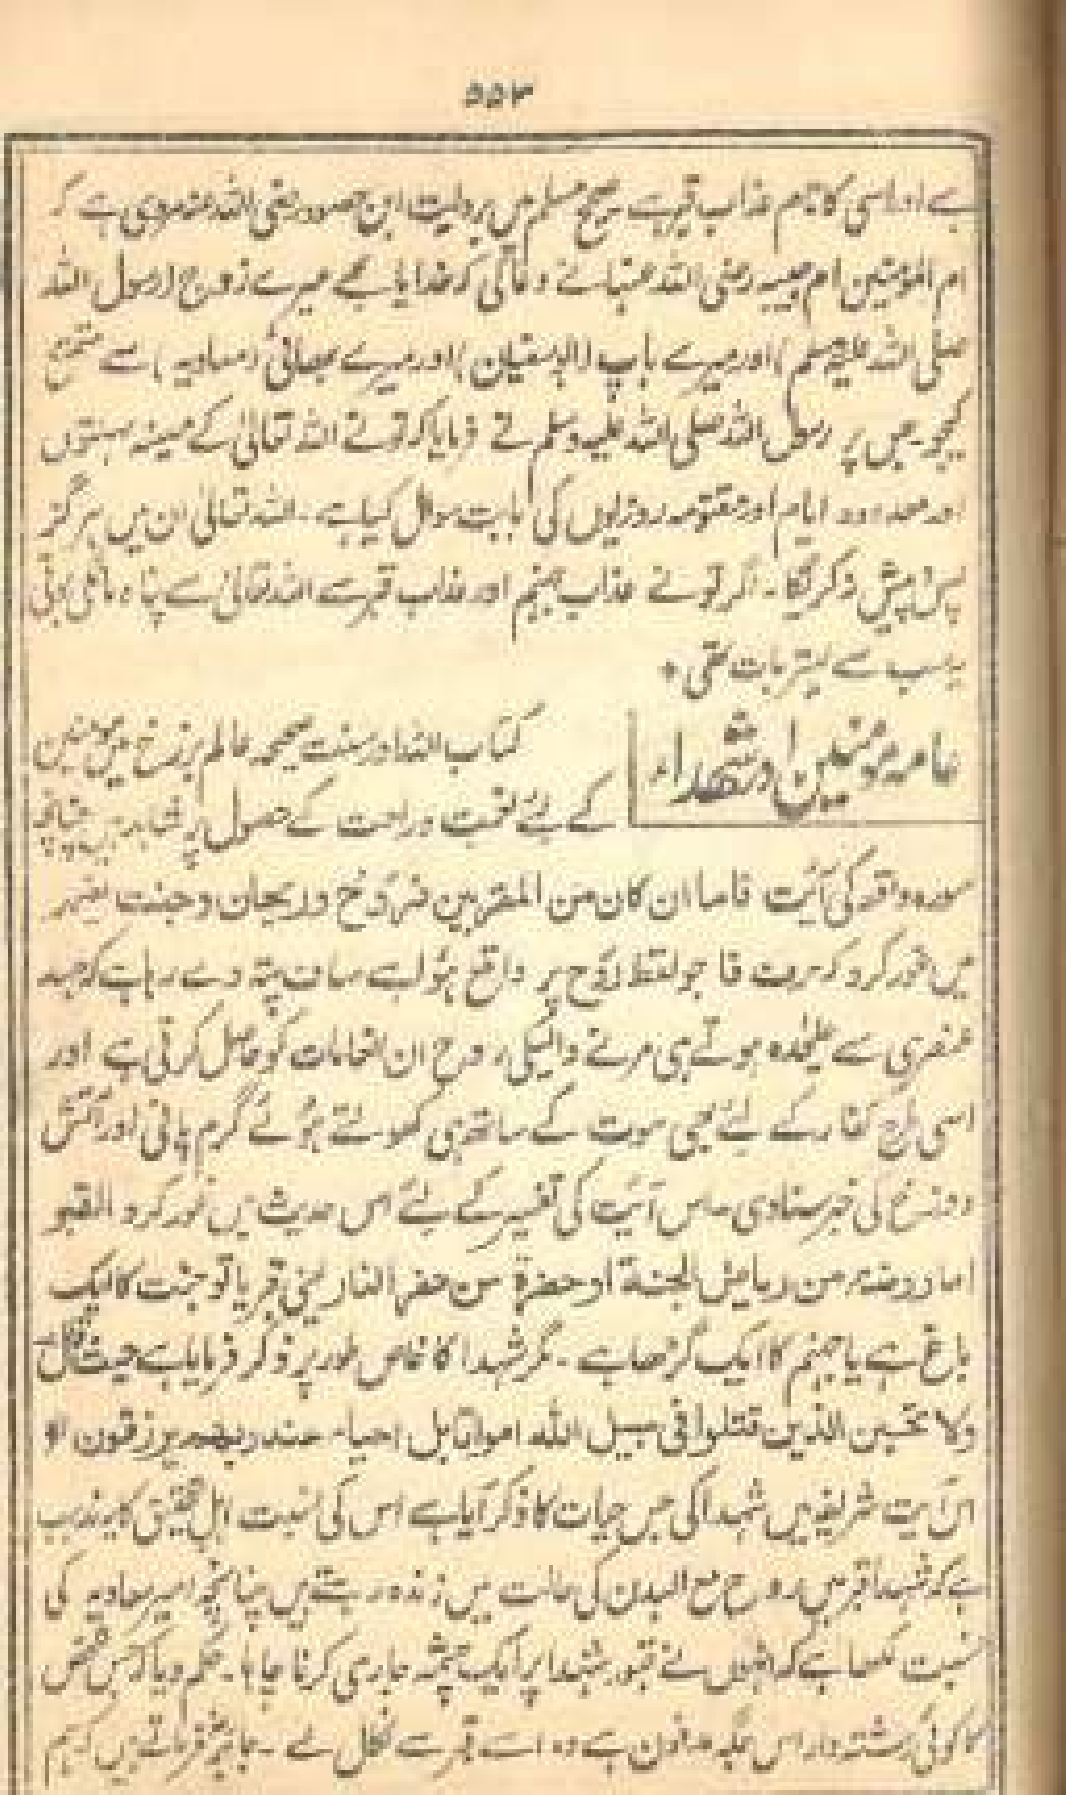 ۵۵۳
ہے اور اسی کا نام عذاب قبر ہے صحیح مسلم میں بروایت ابن رضی اللہ عنہ مروی ہے کہ
ام المؤمنین ام حبیبہ رضی اللہ عنہا نے دعا کی کہ خدایا مجھے میرے زوج (رسول اللہ
صلی اللہ علیہ وسلم) اور میرے باپ (ابوسفیان) اور میرے بھائی (معاویہ) سے متمتع
کیجیو۔ جس پر رسول اللہ صلی اللہ علیہ وسلم نے فرمایا کہ تو نے اللہ تعالیٰ کے
اور معدودہ ایام اور مقسومہ روزیوں کی بابت سوال کیا ہے۔ اللہ تعالیٰ ان میں ہرگز
پس و پیش نہ کرے گا۔ اگر تو نے عذاب جہنم اور عذاب قبر سے اللہ تعالیٰ سے پناہ مانگی ہوتی
یہ سب سے بہتر بات تھی *
عامہ مومنین اور شہداء
کتاب اللہ اور سنت صحیحہ عالم برزخ میں مومنین
کے لئے نعمت و راحت کے حصول پر شاہد ہیں چنانچہ
سورہ واقعہ کی آیت فاما ان کان من المقربین فروح و ریحان و جنت نعیم
میں غور کرو کہ حرف فا جو لفظ روح پر واقع ہوا ہے صاف پتہ دے رہا ہے کہ جسد
عنصری سے علیحدہ ہوتے ہی مرنے والیکی روح ان انعامات کو حاصل کرتی ہے اور
اسی طرح کفار کے لئے بھی موت کے ساتھ ہی کھولتے ہوئے گرم پانی اور آتش
دوزخ کی خبر سنا دی۔ اس آیت کی تفسیر کے لئے اس حدیث میں غور کرو القبر
اما روضۃ من ریاض الجنۃ او حفرۃ من حفر النار یعنی قبر یا تو جنت کا ایک
باغ ہے یا جہنم کا ایک گڑھا ہے۔ مگر شہدا کا خاص طور پر ذکر فرمایا ہے حیث قال
ولا تحسبن الذین قتلوا فی سبیل اللہ امواتا بل احیاء عند ربھم یرزقون *
اس آیت شریفہ میں شہدا کی جس حیات کا ذکر آیا ہے اس کی نسبت اہل تحقیق کا یہ مذہب
ہے کہ شہدا قبر میں روح مع البدن کی حالت میں زندہ رہتے ہیں چنانچہ امیر معاویہ کی
نسبت لکھا ہے کہ انہوں نے قبور شہدا پر ایک چشمہ جاری کرنا چاہا۔ حکم دیا کہ جس شخص
کا کوئی رشتہ دار اس جگہ مدفون ہے وہ اسے قبر سے نکال لے۔ جابرؓ فرماتے ہیں کہ ہم